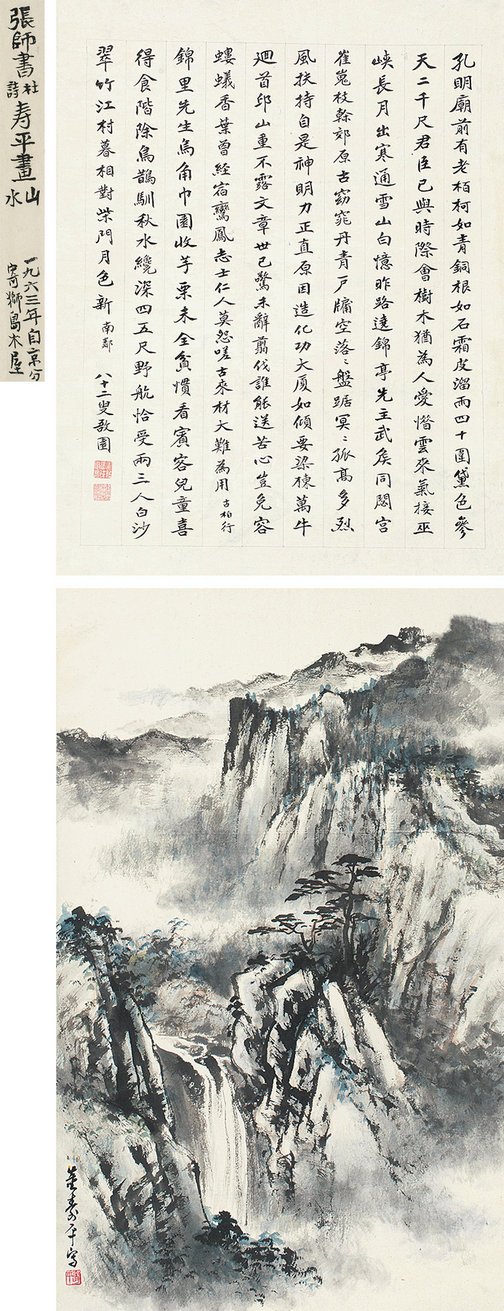 張師書杜詩壽平畫山水
一九六三年自京分
寄獅島木屋
孔明廟前有老栢柯如青銅根如石霜皮溜雨四十圍黛色參
天二千尺君臣已與時際會樹木猶為人愛惜雲來氣接巫
峽長月出寒通雪山白憶昨路遶錦亭先主武矦同閟宮
崔嵬枝幹郊原古窈窕丹青戶牖空落〻盤踞冥〻孤高多烈
風扶持自是神明力正直原因造化功大廈如傾要梁棟萬牛
迴首邱山重不露文章世已驚未辭翦伐誰能送苦心豈免容
螻蟻香葉曾經宿鸞鳳志士仁人莫怨嗟古來材大難為用 古柏行
錦里先生烏角巾園收芋栗未全貧慣看賓客兒童喜
得食階除鳥鵲馴秋水纔深四五尺野航恰受兩三人白沙
翠竹江村暮相對柴門月色新 南鄰 八十二叟敫園
董壽平寫